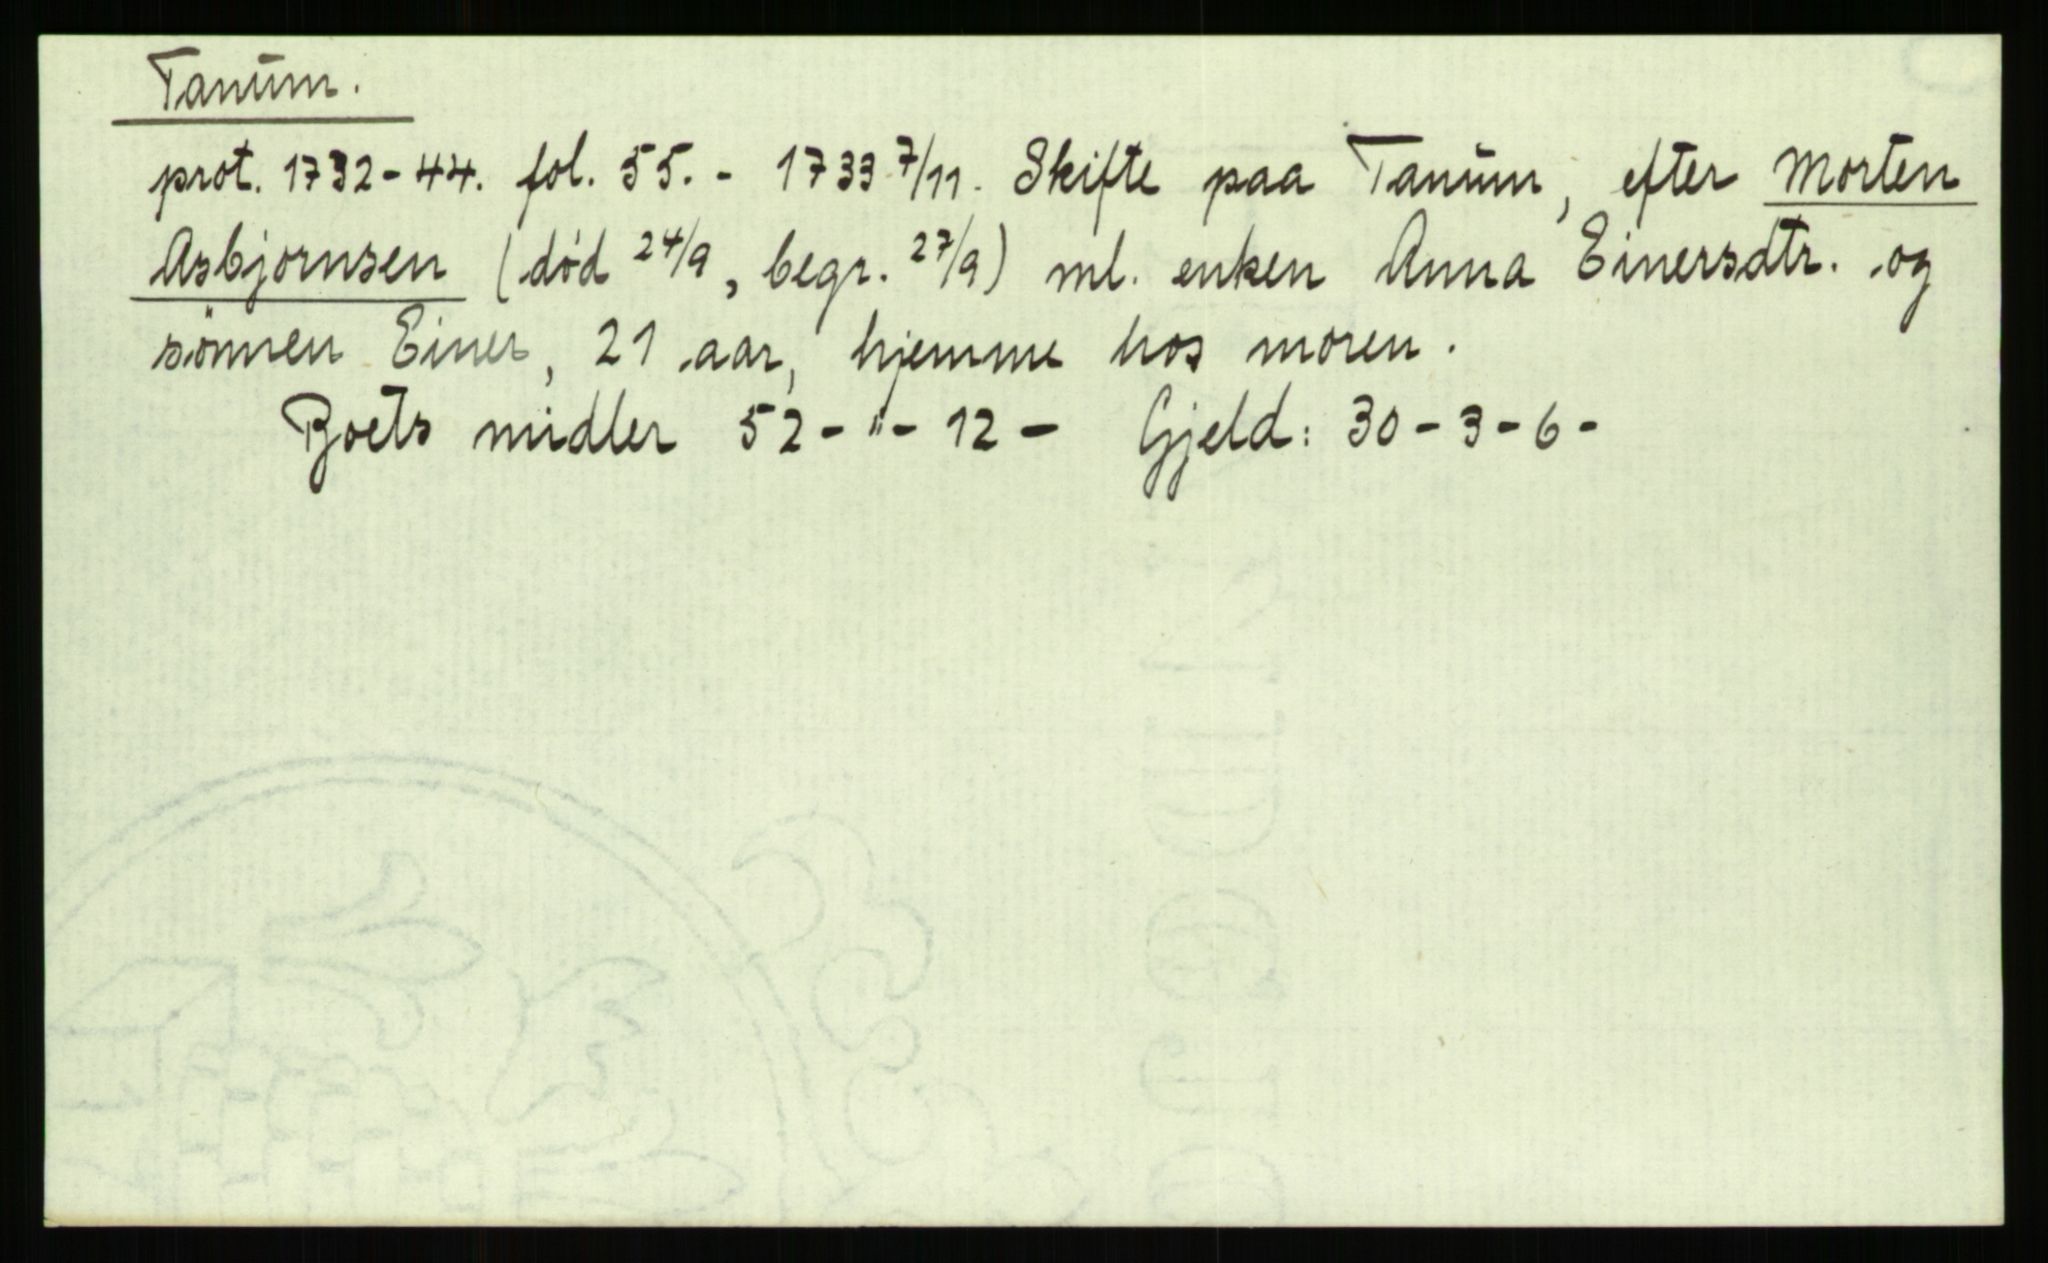 Tanum.
prot. 1732-44. fol. 55. - 1733 7/11. Skifte paa Tanum, efter Morten
Asbjørnsen (død 24/9, begr. 27/9) ml. enken Anna Einersdtr. og
sönnen Einer, 21 aar, hjemme hos moren.
Boets midler 52 - " - 12 - Gjeld: 30 - 3 - 6 -